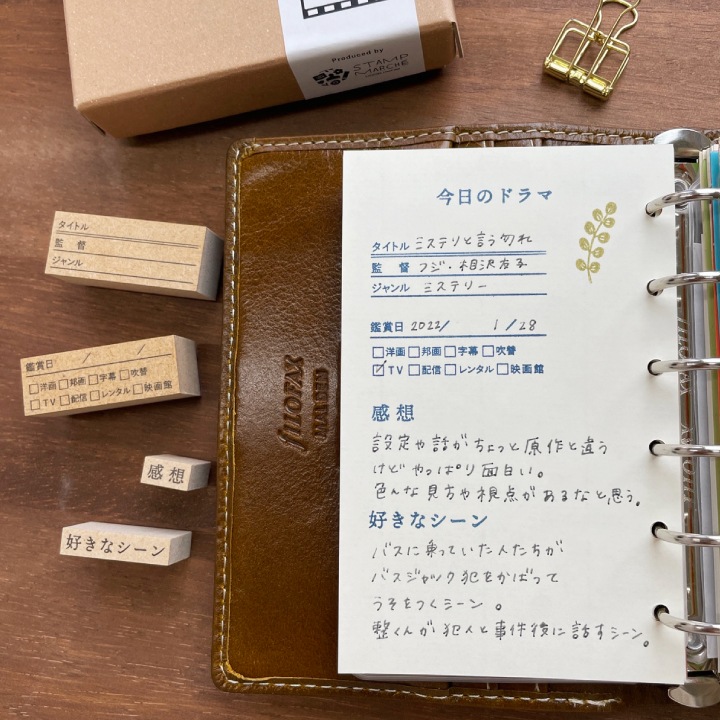 Produced by
STAMP
MARCHÉ
今日のドラマ
タイトル ミステリと言う勿れ
監 督 フジ・相沢友子
ジャンル ミステリー
鑑賞日 2022/ 1/28
□洋画 □邦画 □字幕 □吹替
☑TV □配信 □レンタル □映画館
感想
設定や話がちょっと原作と違う
けどやっぱり面白い。
色んな見方や視点があるなと思う。
好きなシーン
バスに乗っていた人たちが
バスジャック犯をかばって
うそをつくシーン。
整くんが犯人と事件後に話すシーン。
タイトル
監 督
ジャンル
鑑賞日 / /
□洋画 □邦画 □字幕 □吹替
□TV □配信 □レンタル □映画館
感想
好きなシーン
filofax